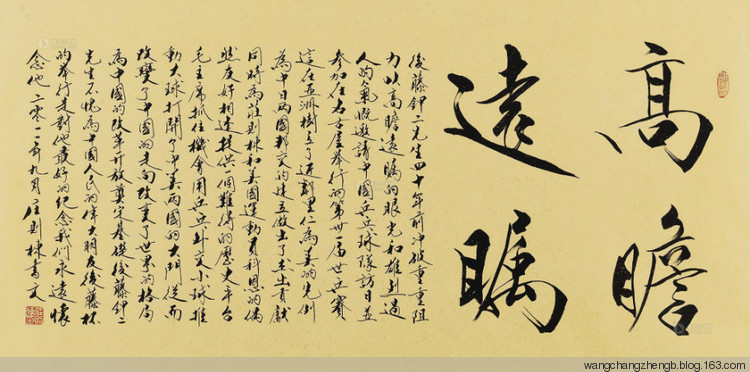 高瞻
遠瞩
後藤鉀二先生四十年前冲破重重阻
力以高瞻遠瞩的眼光和雄烈過
人的氣慨邀請中國乒乓球隊訪日並
参加在名古屋舉行的第卅一届世乒賽
這在亚洲樹立了近鄰里仁為美的先例
為中日两國邦交的建立做出了杰出貢獻
同時為莊則棟和美國運動員科恩的偶
然友好相逢提供一個難得的歷史平台
毛主席抓住機會用乒乓外交小球推
動大球打開了中美两國的大門從而
改變了中國的走向改变了世界的格局
為中國的改革开放奠定基礎後藤鉀二
先生不愧為中國人民的偉大朋友後藤杯
的举行是對他最好的纪念我們永遠懷
念他 二零一一年九月 庄則棟書文
wangchangzhengb.blog.163.com